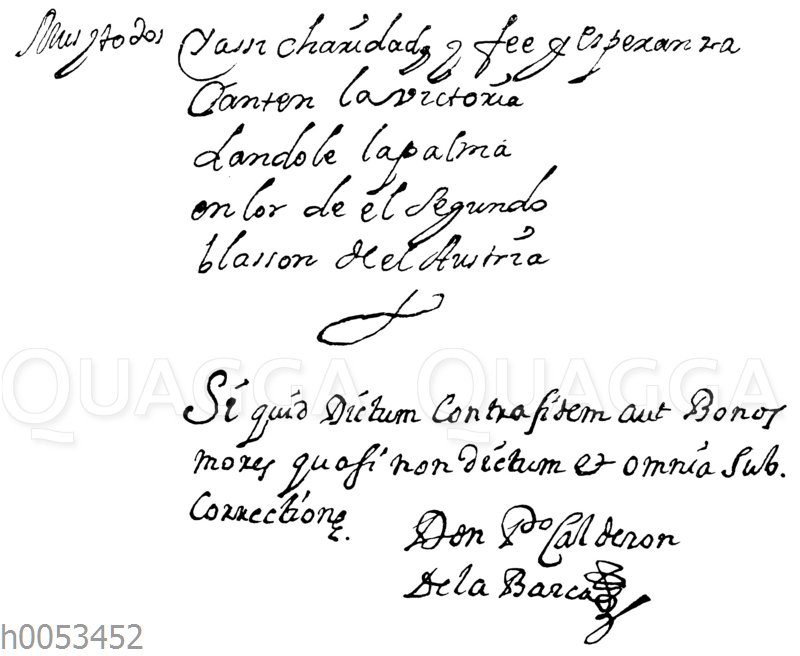 Mus y todos Y assi charidad y fee y esperanza
Canten la victoria
dandole la palma
en lor de el Segundo
blasson de el Austria
QUAGGA QUAGGA
Si quid Dictum Contra fidem aut Bonos
mores quasi non dictum et omnia Sub.
Correctione.
Don Po Calderon
De la Barca
h0053452